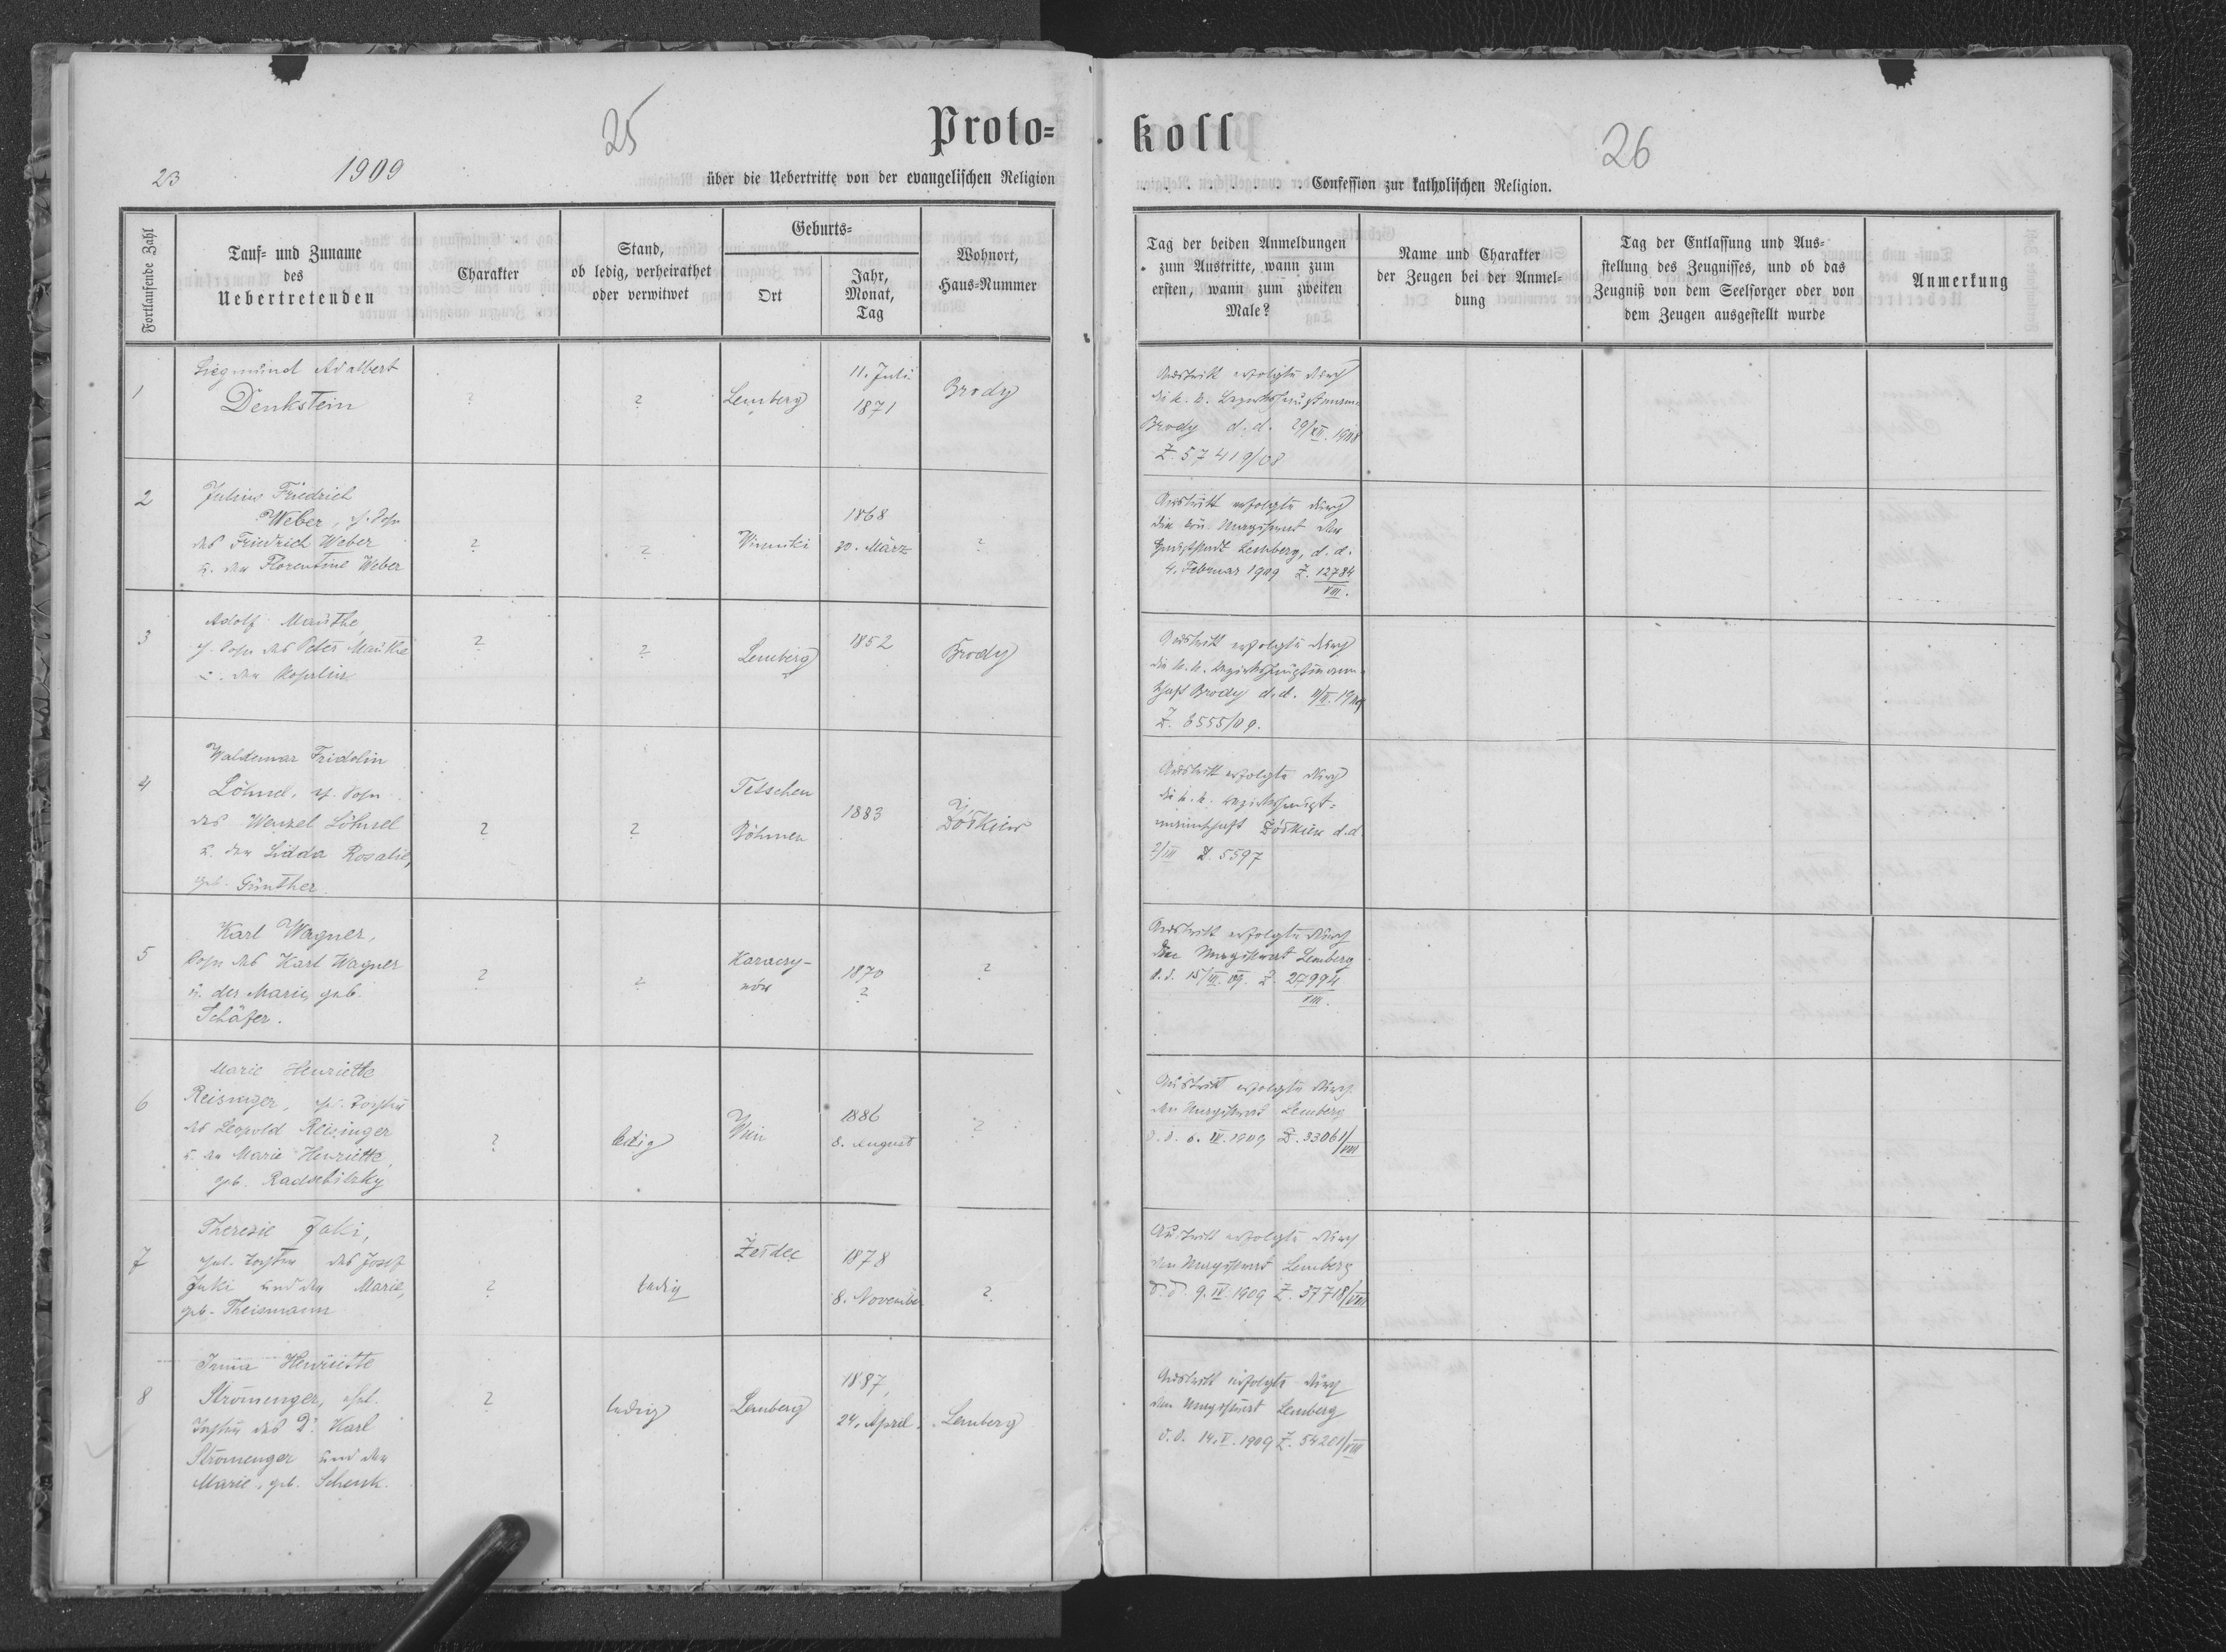 25
Proto-
koll
26
23
1909
über die Uebertritte von der evangelischen Religion
Confession zur katholischen Religion.
Fortlaufende Zahl
Tauf- und Zuname
des
Uebertretenden
Charakter
Stand,
ob ledig, verheirathet
oder verwitwet
Geburts-
Ort
Jahr,
Monat,
Tag
Wohnort,
Haus-Nummer
Tag der beiden Anmeldungen
zum Austritte, wann zum
ersten, wann zum zweiten
Male?
Name und Charakter
der Zeugen bei der Anmel-
dung
Tag der Entlassung und Aus-
stellung des Zeugnisses, und ob das
Zeugniß von dem Seelsorger oder von
dem Zeugen ausgestellt wurde
Anmerkung
1
Siegmund Adalbert
Denkstein
?
?
Lemberg
11. Juli
1871
Brody
Austritt erfolgte durch
die k. k. Bezirkshauptmann
Brody d.d. 29/XII. 1908
Z. 57419/08
2
Julius Friedrich
Weber, ehl. Sohn
des Friedrich Weber
u. der Florentine Weber
?
?
Winniki
1868
30. März
?
Austritt erfolgte durch
den Magistrat der
Hauptstadt Lemberg, d.d.
4. Februar 1909 Z. 12784
VIII.
3
Adolf Mauthe,
ehl. Sohn des Peter Mauthe
u. der Rosalie
?
?
Lemberg
1852
Brody
Austritt erfolgte durch
die k. k. Bezirkshauptmann-
schaft Brody d.d. 1909
Z. 6555/09.
4
Waldemar Fridolin
Löhnel, ehl. Sohn
des Wenzel Löhnel
u. der Lidda Rosalie,
geb. Günther
?
?
Tetschen
Böhmen
1883
?
Żółkiew
Austritt erfolgte durch
die k. k. Bezirkshaupt-
mannschaft Żółkiew d.d.
2/III Z. 5597
5
Karl Wagner,
Sohn des Karl Wagner
u. der Marie, geb.
Schäfer.
?
?
Karaczy-
nów
1870
?
?
Austritt erfolgte durch
den Magistrat Lemberg
d.d. 15/III. 09. Z. 27994
VIII.
6
Marie Henriette
Reisinger, ehl. Tochter
des Leopold Reisinger
u. der Marie Henriette,
geb.
?
ledig
Wien
1886
8. August
?
Austritt erfolgte durch
den Magistrat Lemberg
d.d. 6. IV. 1909 Z. 33061/VIII
7
Theresie Jaki,
ehel. Tochter des Josef
Jaki und der Marie,
geb. Theismann
?
ledig
1878
8. November
?
Austritt erfolgte durch
den Magistrat Lemberg
d.d. 9. IV. 1909 Z. 37718/VIII
8
Irma Henriette
Stromenger, ehel.
Tochter des Dr. Karl
Stromenger und der
Marie, geb. Schenk.
?
ledig
Lemberg
1887,
24. April.
Lemberg
Austritt erfolgte durch
den Magistrat Lemberg
d.d. 14. V. 1909 Z. 54201/VIII